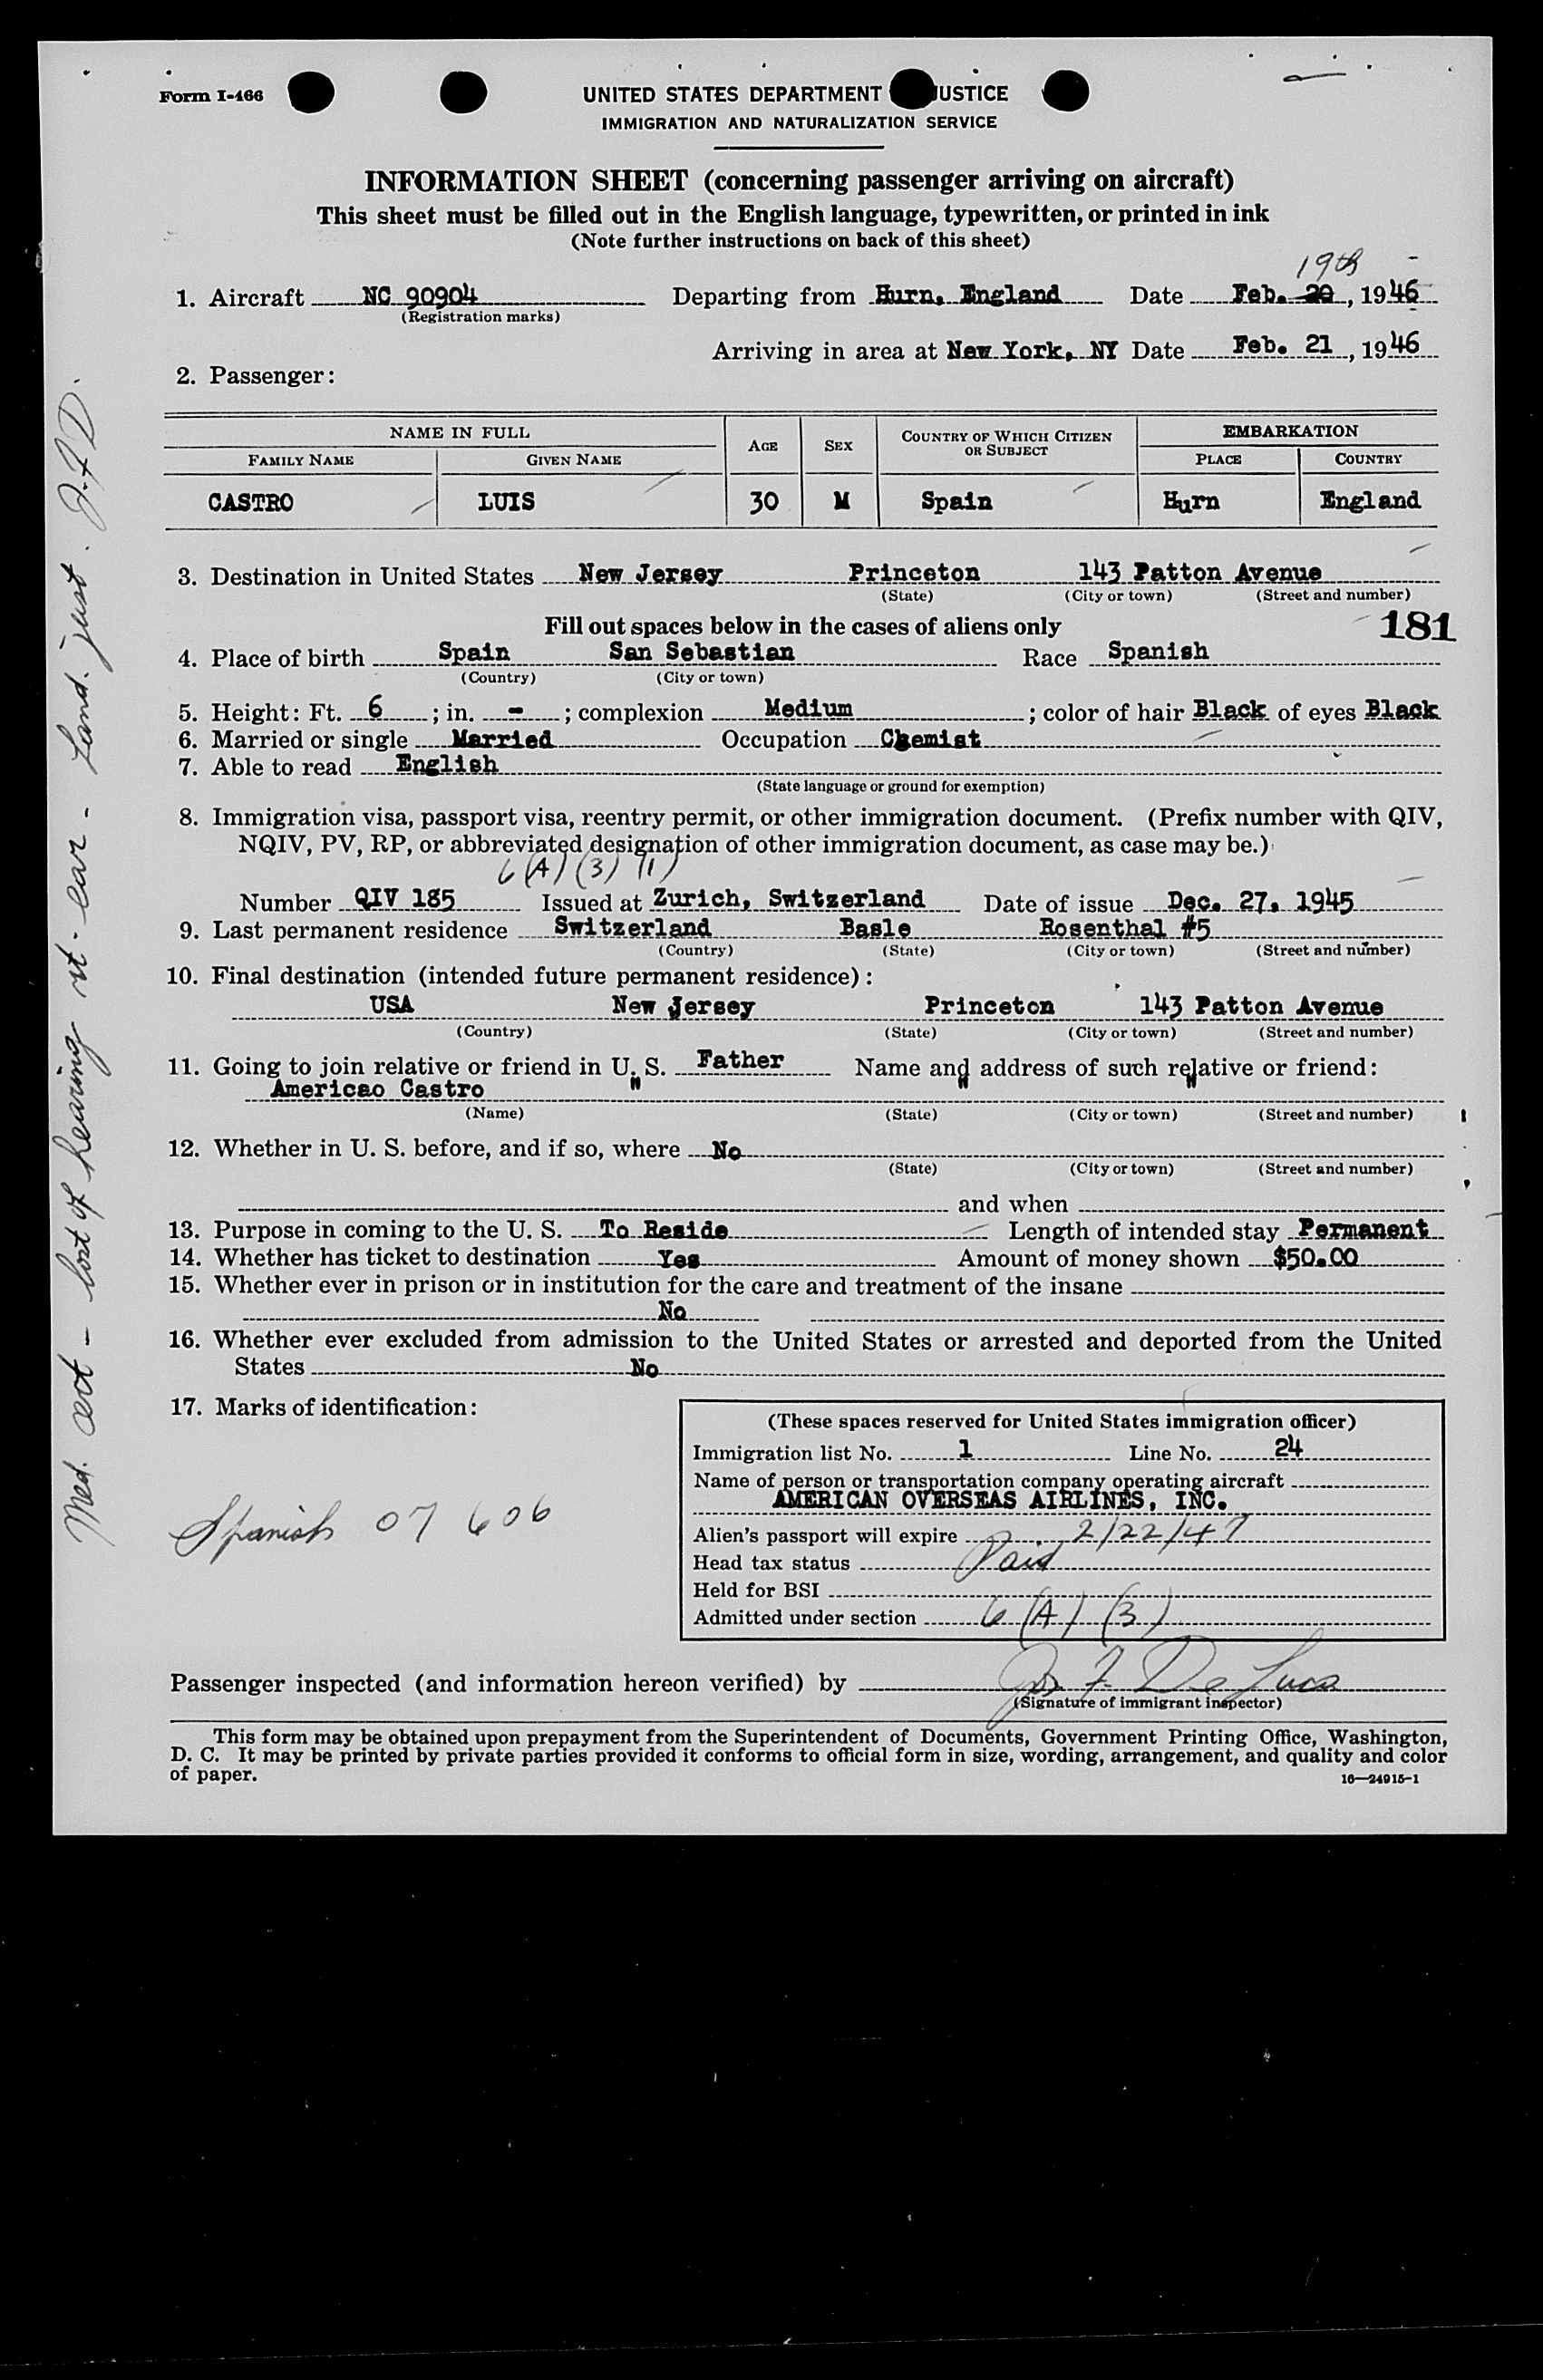 Form I-466
UNITED STATES DEPARTMENT JUSTICE
IMMIGRATION AND NATURALIZATION SERVICE
INFORMATION SHEET (concerning passenger arriving on aircraft)
This sheet must be filled out in the English language, typewritten, or printed in ink
(Note further instructions on back of this sheet)
19th
1. Aircraft NC 90904 Departing from Hurn, England Date Feb. 20, 1946
(Registration marks)
Arriving in area at New York, NY Date Feb. 21, 1946
2. Passenger:
NAME IN FULL AGE SEX COUNTRY OF WHICH CITIZEN OR SUBJECT EMBARKATION
FAMILY NAME GIVEN NAME PLACE COUNTRY
CASTRO LUIS 30 M Spain Hurn England
3. Destination in United States New Jersey Princeton 143 Patton Avenue
(State) (City or town) (Street and number)
Fill out spaces below in the cases of aliens only 181
4. Place of birth Spain San Sebastian Race Spanish
(Country) (City or town)
5. Height: Ft. 6 ; in. - ; complexion Medium ; color of hair Black of eyes Black
6. Married or single Married Occupation Chemist
7. Able to read English
(State language or ground for exemption)
8. Immigration visa, passport visa, reentry permit, or other immigration document. (Prefix number with QIV,
NQIV, PV, RP, or abbreviated designation of other immigration document, as case may be.)
6 (A) (3) (1)
Number QIV 185 Issued at Zurich, Switzerland Date of issue Dec. 27. 1945
9. Last permanent residence Switzerland Basle Rosenthal #5
(Country) (State) (City or town) (Street and number)
10. Final destination (intended future permanent residence):
USA New Jersey Princeton 143 Patton Avenue
(Country) (State) (City or town) (Street and number)
11. Going to join relative or friend in U. S. Father Name and address of such relative or friend:
Americao Castro " " "
(Name) (State) (City or town) (Street and number)
12. Whether in U. S. before, and if so, where No
(State) (City or town) (Street and number)
and when
13. Purpose in coming to the U. S. To Reside Length of intended stay Permanent
14. Whether has ticket to destination Yes Amount of money shown $50.00
15. Whether ever in prison or in institution for the care and treatment of the insane
No
16. Whether ever excluded from admission to the United States or arrested and deported from the United
States No
17. Marks of identification:
(These spaces reserved for United States immigration officer)
Immigration list No. 1 Line No. 24
Name of person or transportation company operating aircraft
AMERICAN OVERSEAS AIRLINES, INC.
Alien's passport will expire 2/22/47
Head tax status Paid
Held for BSI
Admitted under section 6 (A) (3)
Spanish 07 606
Passenger inspected (and information hereon verified) by Jos F. De Luca
(Signature of immigrant inspector)
This form may be obtained upon prepayment from the Superintendent of Documents, Government Printing Office, Washington,
D. C. It may be printed by private parties provided it conforms to official form in size, wording, arrangement, and quality and color
of paper.
16—24915-1
Med. cert - lost of hearing rt. ear - Land. just. J.F.D.